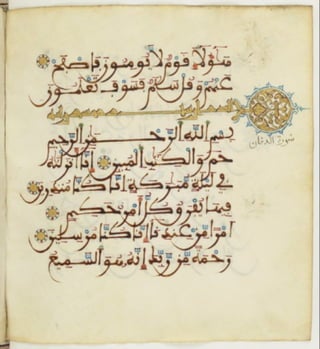 هَٰؤُلَاءِ قَوْمٌ لَا يُومِنُونَ فَاصْفَحْ
عَنْهُمْ وَقُلْ سَلَٰمٌ فَسَوْفَ تَعْلَمُونَ
سورة الدخان
بِسْمِ اللَّهِ الرَّحْمَٰنِ الرَّحِيمِ
حم وَالْكِتَٰبِ الْمُبِينِ إِنَّا أَنزَلْنَٰهُ
فِي لَيْلَةٍ مُّبَٰرَكَةٍ إِنَّا كُنَّا مُنذِرِينَ
فِيهَا يُفْرَقُ كُلُّ أَمْرٍ حَكِيمٍ
أَمْرًا مِّنْ عِندِنَا إِنَّا كُنَّا مُرْسِلِينَ
رَحْمَةً مِّن رَّبِّكَ إِنَّهُ هُوَ السَّمِيعُ